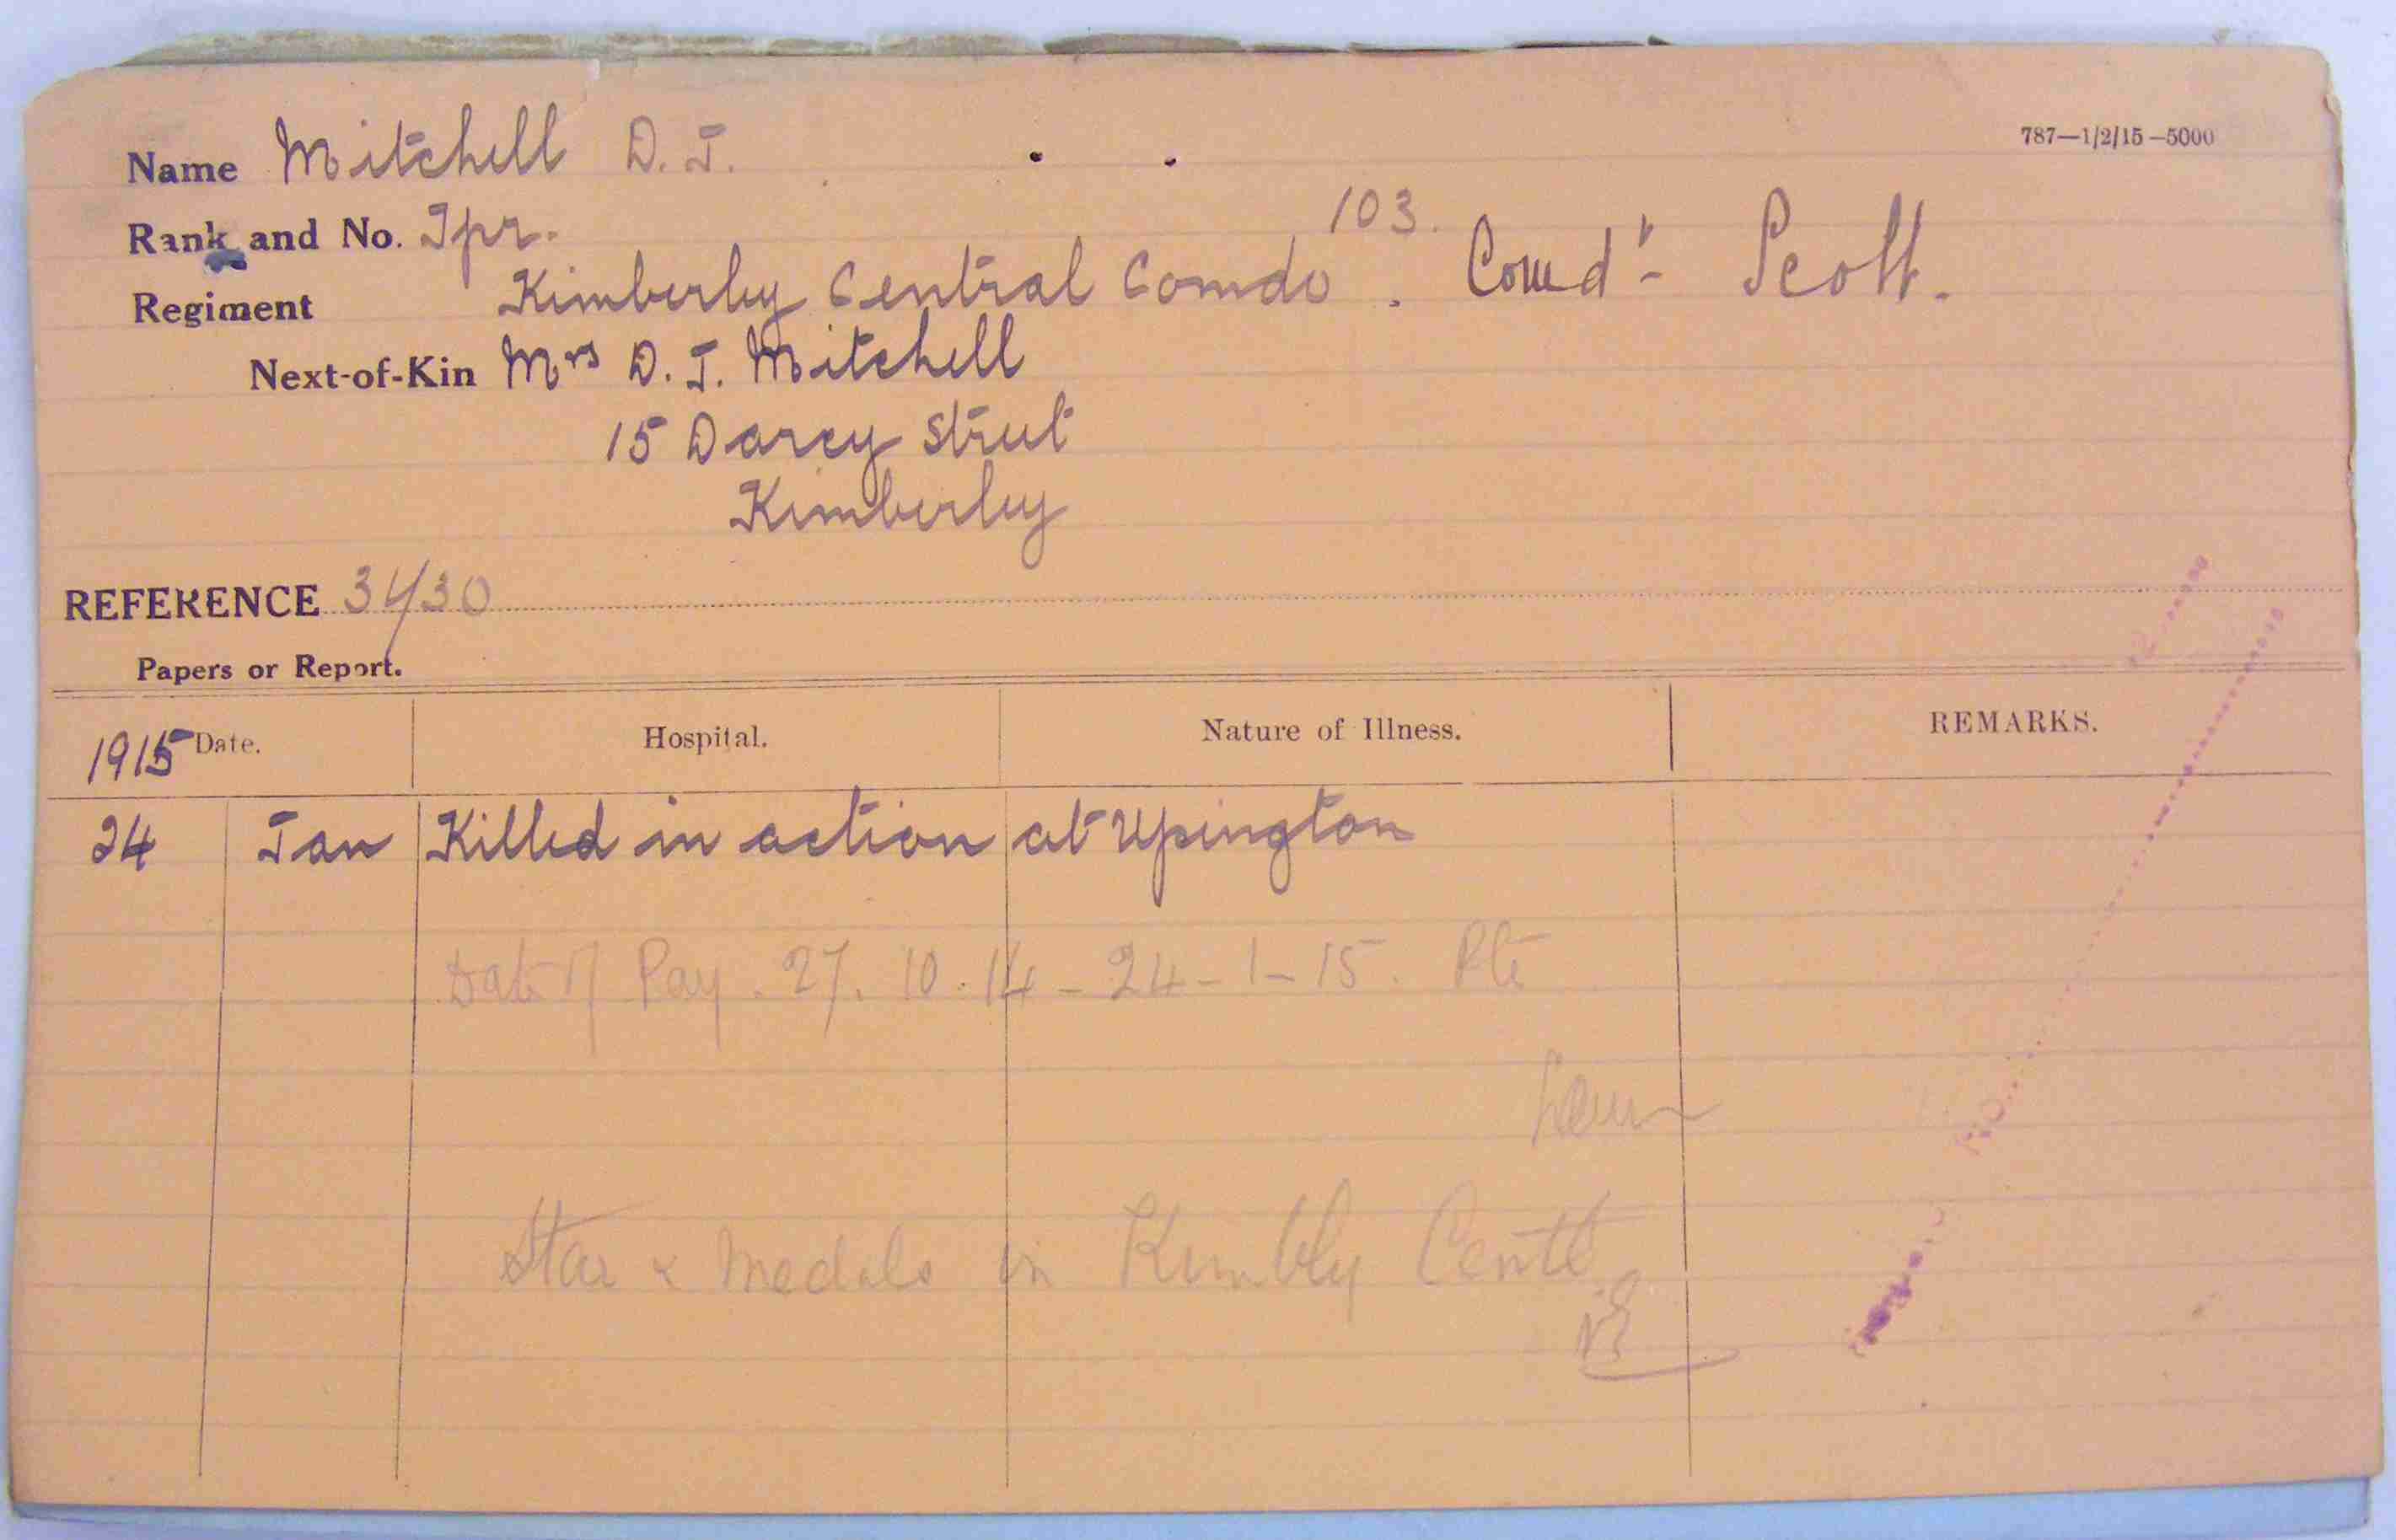 787—1/2/15—5000
Name Mitchell D. J.
Rank and No. Tpr.
103.
Regiment Kimberley Central Comdo. Comdt Scott.
Next-of-Kin Mrs D. J. Mitchell
15 Darcy Street
Kimberley
REFERENCE 34/30
Papers or Report.
1915 Date. Hospital. Nature of Illness. REMARKS.
24 Jan Killed in action at Upington
Date of Pay. 27. 10. 14 - 24-1-15. Pte
Star & Medals in Kimbly Centl